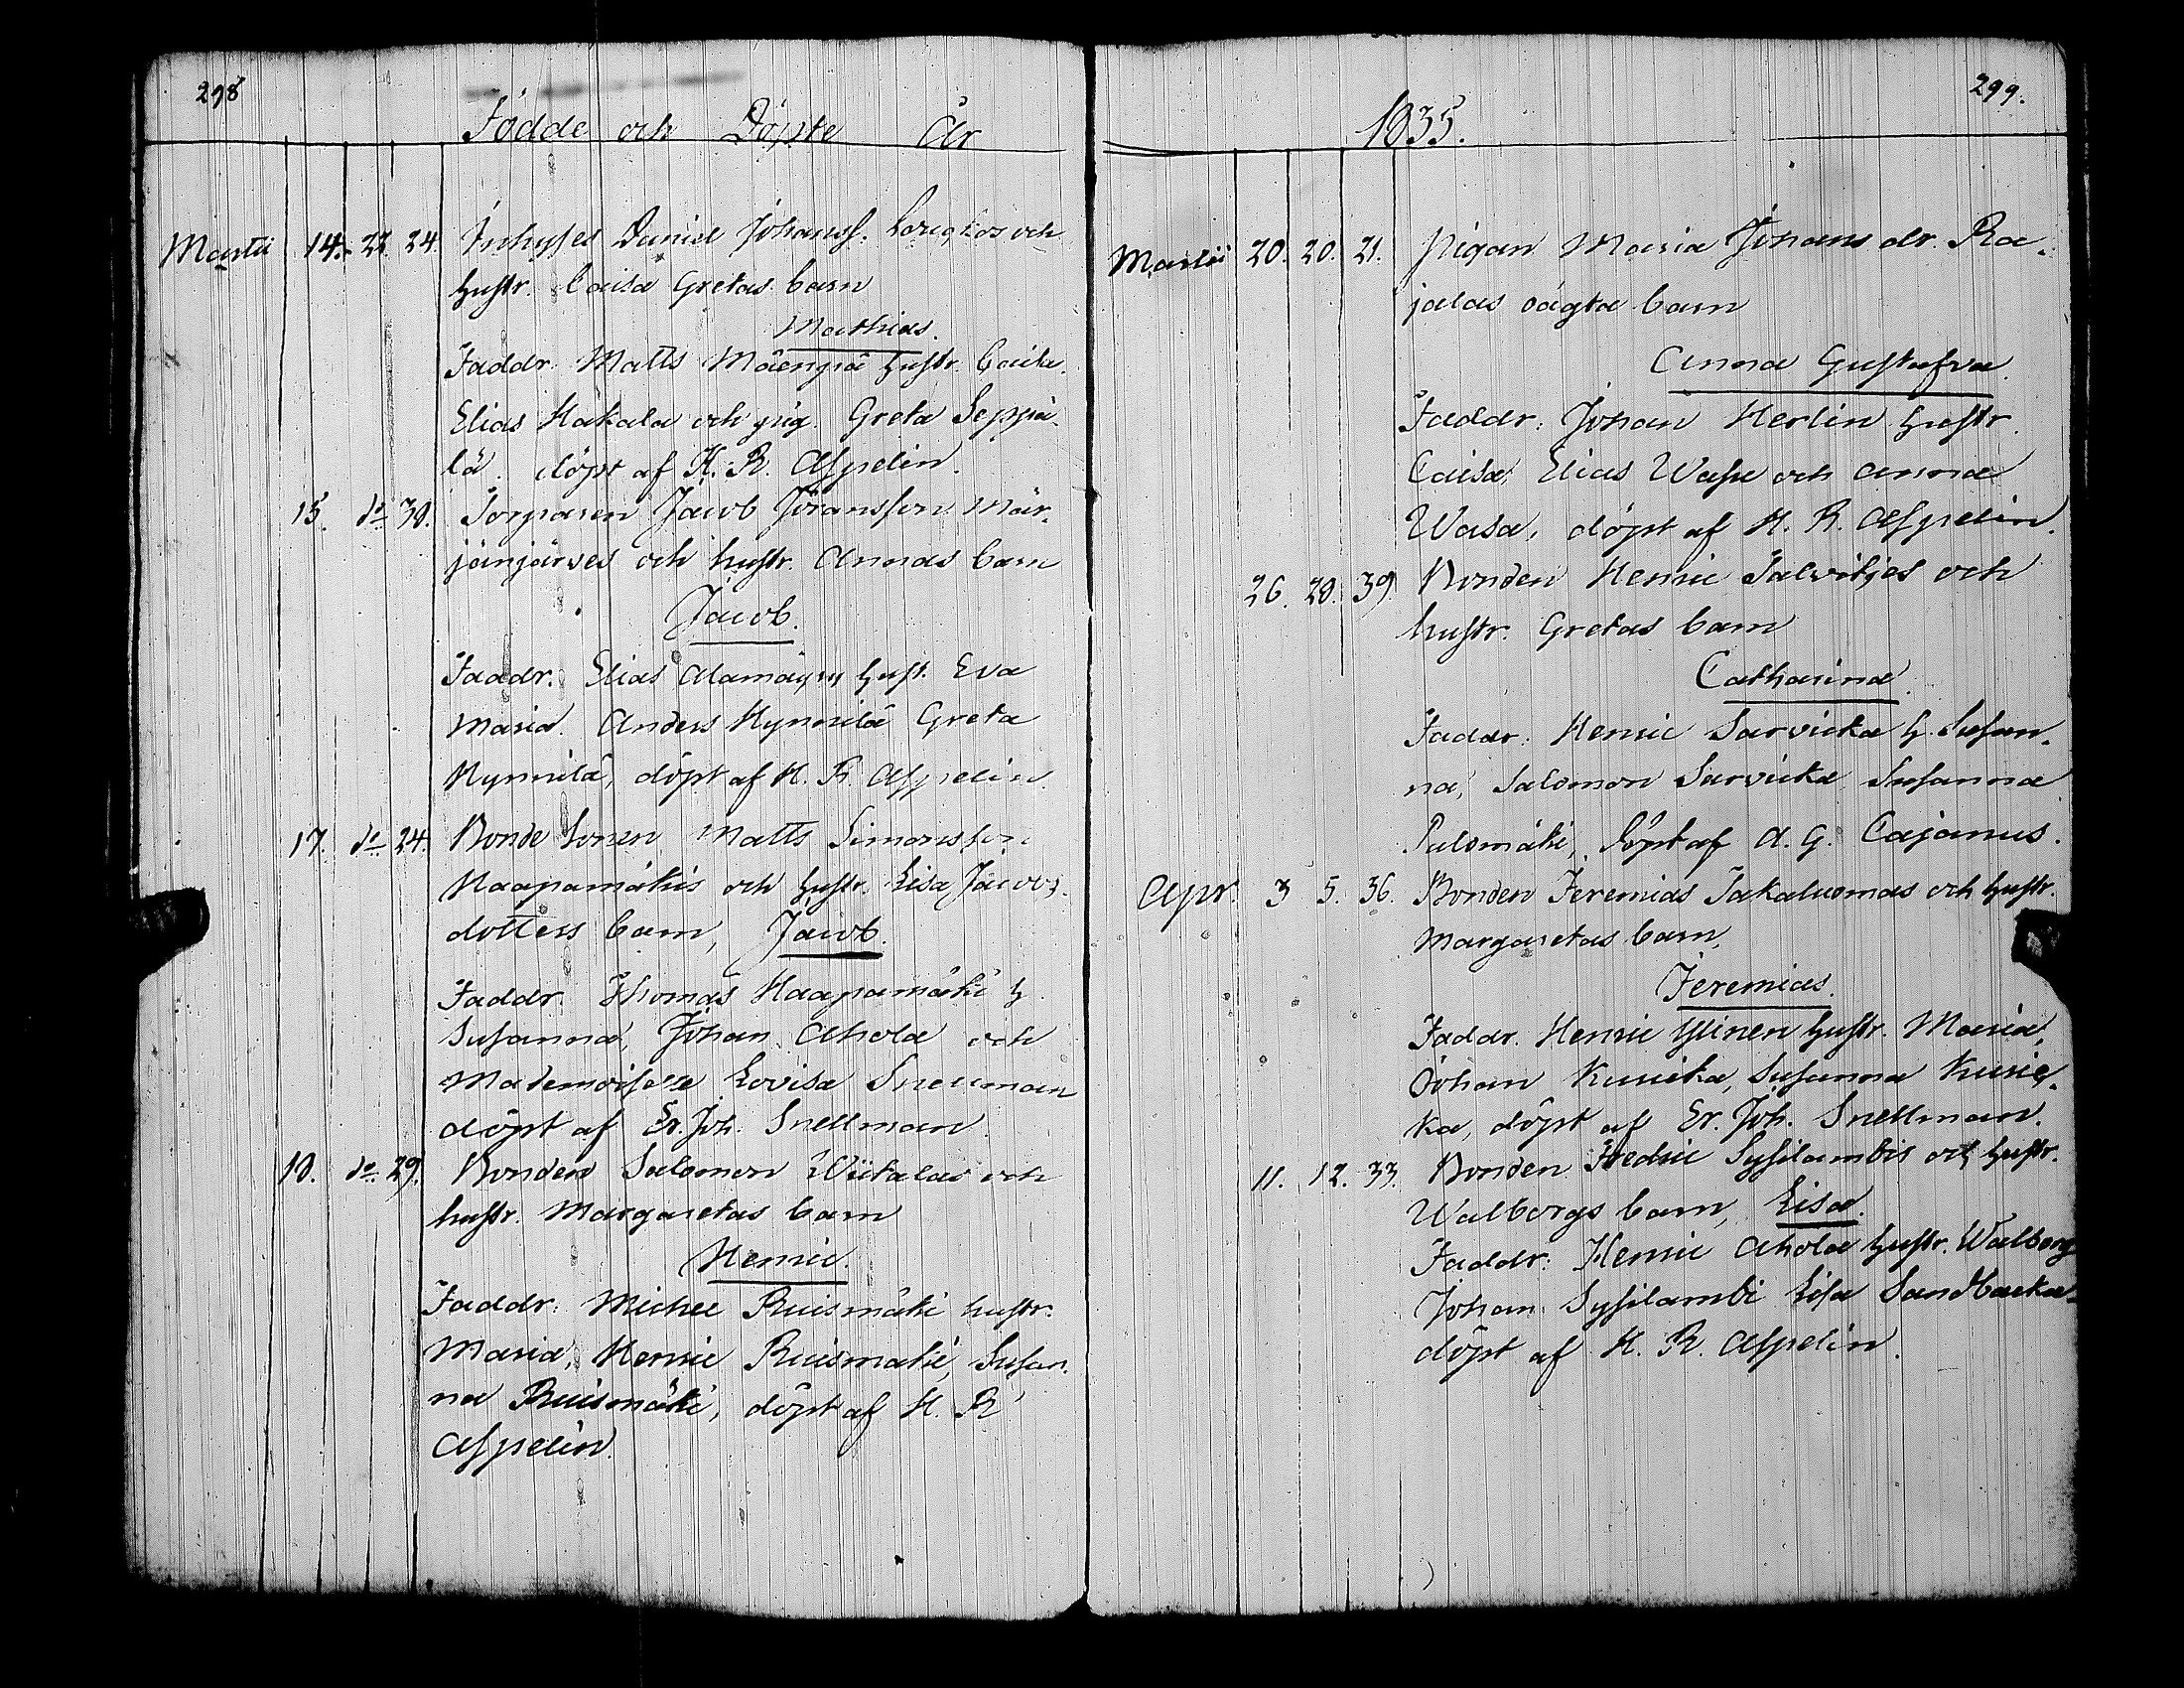 298
Födde och Döpte År
Martii 14. 22. 24. Inhyses Daniel Johanss. och
hustr. Caisa Gretas barn
Mathias.
Faddr. Matts Mäenpä hustr. Caisa.
Elias Hakala och pig. Greta Seppä-
lä. döpt af H. R. Aspelin.
15. do 30. Torparen Jacob Göransson Mär-
jänjärves och hustr. Annas barn
Jacob.
Faddr. Elias hust. Eva
Maria. Anders Hynnilä Greta
Hynnilä, döpt af H. R. Aspelin.
17. do 24. Bonde Sonen Matts Simonsson
Haapamäkis och hustr. Lisa Jacobs-
dotters barn, Jacob.
Faddr. Thomas Haapamäki h.
Susanna, Johan Ahola och
Mademoiselle Lovisa Snellman
döpt af Er. Joh. Snellman.
18. do 29. Bonden Salomon Wiitalas och
hustr. Margaretas barn
Henric.
Faddr. Michel Ruismäki hustr.
Maria, Henric Ruismäki, Susan-
na Ruismäki, döpt af H. R
Aspelin.
299.
1835.
Martii 20. 20. 21. Pigan Maria Johans dr. Ra-
jalas oägta barn
Anna Gustafva.
Faddr. Johan Herlin hustr.
Caisa, Elias Wasa och Anna
Wasa, döpt af H. R. Aspelin.
26. 28. 39. Bonden Henric Salvitjes och
hustr. Gretas barn
Catharina.
Faddr: Henric Sarvicka h. Susan-
na, Salomon Sarvicka Susanna
Pulsmäki, döpt af A. G. Cajanus.
Apr. 3 5. 36. Bonden Jeremias Jakaluomas och hustr.
Margaretas barn,
Jeremias.
Faddr. Henric Ylinen hustr. Maria,
Johan Kuricka, Susanna Kuric-
ka, döpt af Er. Joh. Snellman.
11. 12. 33. Bonden Fredric Sysilambis och hustr.
Walborgs barn, Lisa.
Faddr: Henric Ahola hustr. Walborg
Johan Sysilambi Lisa Sandbacka
döpt af H. R. Aspelin.